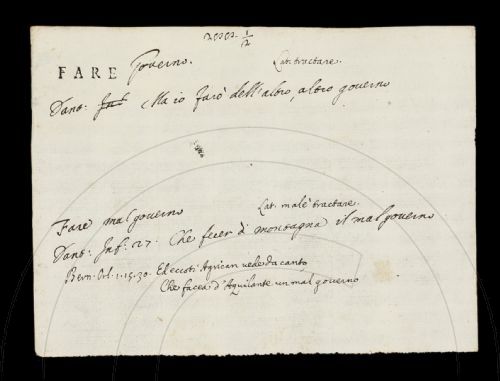 FARE Governo. Lat. tractare.
Dant. Inf. Ma io farò dell'altro, altro governo
Fare mal governo Lat. male tractare.
Dant. Inf. 27. Che fecer di montagna il mal governo
Bern. Orl. 1. 15. 30. Ed eccoti Agrican vede da canto,
Che facea d'Aquilante un mal governo